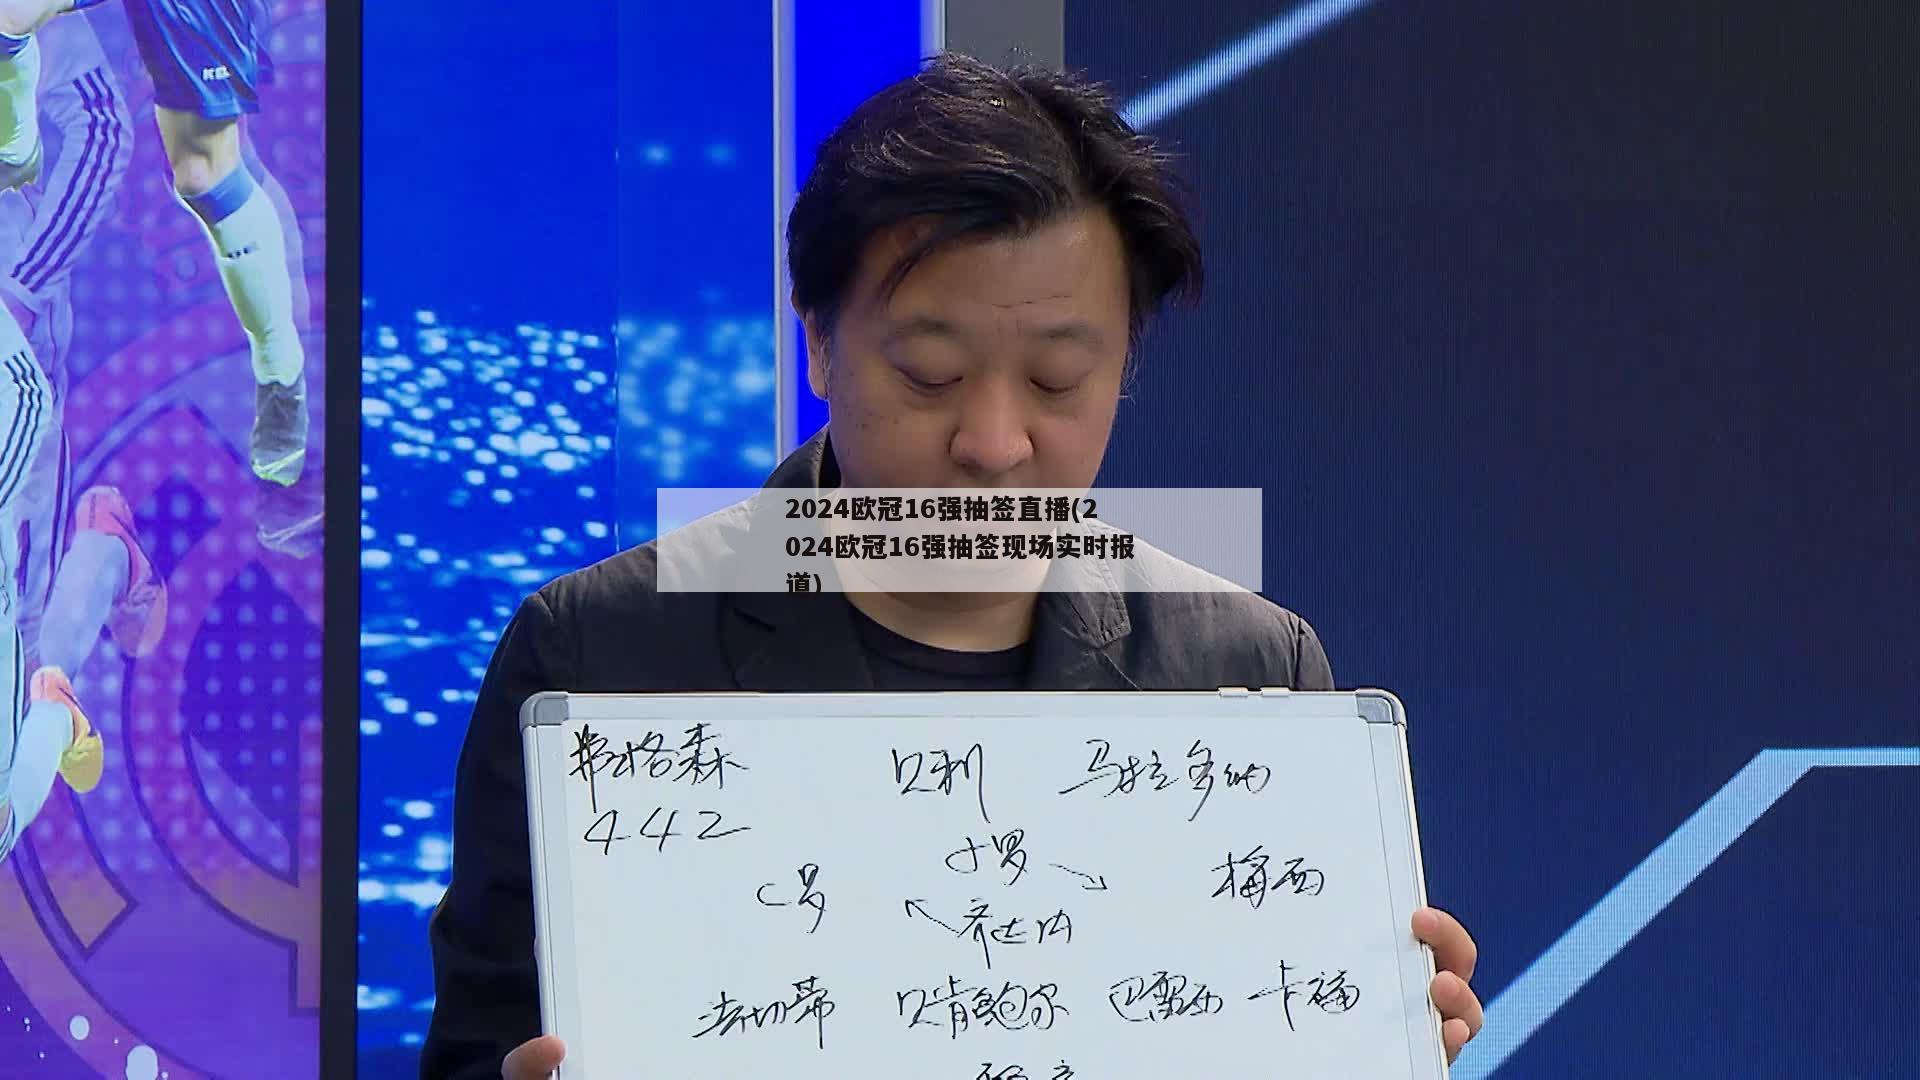 2024欧冠16强抽签直播(2
024欧冠16强抽签现场实时报
道)
弗格森 贝利 马拉多纳
442
小罗
C罗 梅西
齐达内
法切蒂 贝肯鲍尔 巴雷西 卡福